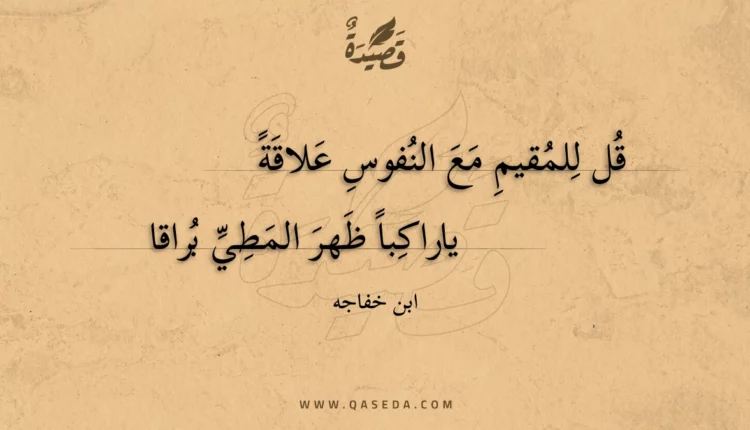 قَصِيْدَةٌ
قُل لِلمُقيمِ مَعَ النُفوسِ عَلاقَةً
ياراكِباً ظَهرَ المَطِيِّ بُراقا
ابن خفاجه
WWW.QASEDA.COM